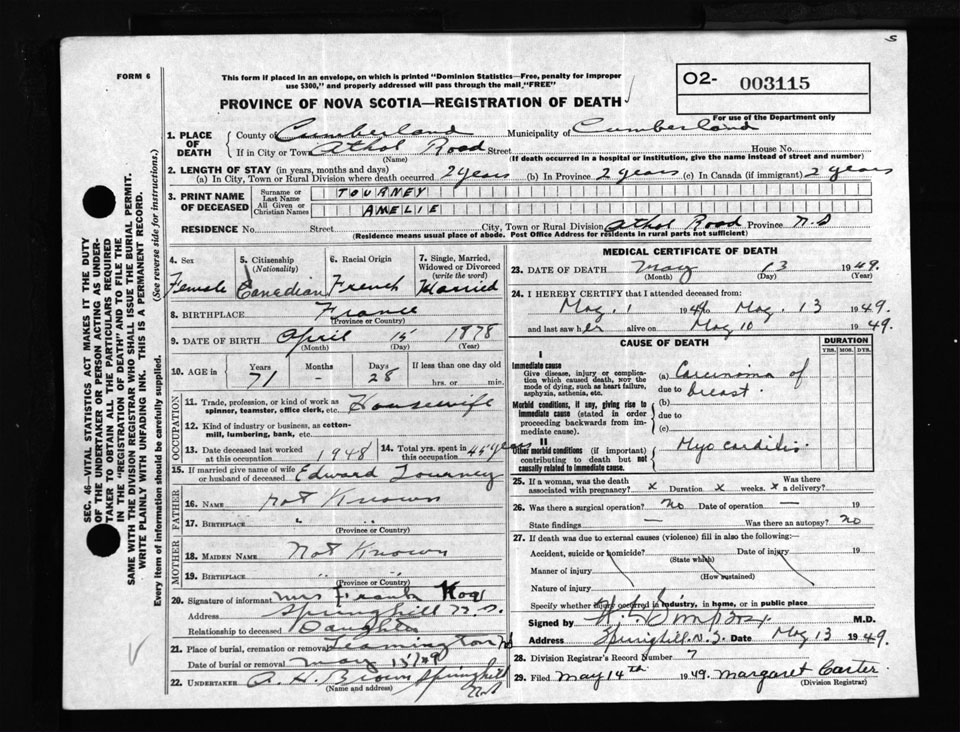 S
FORM 6
This form if placed in an envelope, on which is printed "Dominion Statistics—Free, penalty for improper
use $300," and properly addressed will pass through the mail "FREE"
O2- 003115
For use of the Department only
PROVINCE OF NOVA SCOTIA—REGISTRATION OF DEATH
1. PLACE OF DEATH
County of Cumberland Municipality of Cumberland
If in City or Town Athol Road Street House No.
(Name) (If death occurred in a hospital or institution, give the name instead of street and number)
2. LENGTH OF STAY (in years, months and days)
(a) In City, Town or Rural Division where death occurred 2 years (b) In Province 2 years (c) In Canada (if immigrant) 2 years
3. PRINT NAME OF DECEASED
Surname or Last Name TOURNEY
All Given or Christian Names AMELIE
RESIDENCE No. Street City, Town or Rural Division Athol Road Province N.S
(Residence means usual place of abode. Post Office Address for residents in rural parts not sufficient)
4. Sex Female
5. Citizenship (Nationality) Canadian
6. Racial Origin French
7. Single, Married, Widowed or Divorced (write the word) Married
8. BIRTHPLACE France
(Province or Country)
9. DATE OF BIRTH April 15 1878
(Month) (Day) (Year)
10. AGE in Years Months Days If less than one day old
71 - 28 hrs. or min.
OCCUPATION
11. Trade, profession, or kind of work as
spinner, teamster, office clerk, etc. Housewife
12. Kind of industry or business, as cotton-
mill, lumbering, bank, etc.
13. Date deceased last worked
at this occupation 1948
14. Total yrs. spent in
this occupation 45 years
15. If married give name of wife
or husband of deceased Edward Tourney
FATHER
16. NAME Not Known
17. BIRTHPLACE " "
(Province or Country)
MOTHER
18. MAIDEN NAME Not Known
19. BIRTHPLACE " "
(Province or Country)
20. Signature of informant Mrs Frank
Address Springhill N.S.
Relationship to deceased Daughter
21. Place of burial, cremation or removal Leamington NS
Date of burial or removal May 15/49
22. UNDERTAKER A. H. Brown Springhill
N.S
(Name and address)
MEDICAL CERTIFICATE OF DEATH
23. DATE OF DEATH May 13 1949.
(Month) (Day) (Year)
24. I HEREBY CERTIFY that I attended deceased from:
May. 1 194 to May. 13 1949.
and last saw her alive on May 10 1949.
CAUSE OF DEATH
DURATION
YRS. MOS. DYS.
I
Immediate cause
Give disease, injury or complica-
tion which caused death, not the
mode of dying, such as heart failure,
asphyxia, asthenia, etc.
(a) Carcinoma of
due to breast.
Morbid conditions, if any, giving rise to
immediate cause (stated in order
proceeding backwards from im-
mediate cause).
(b)
due to
(c)
II
Other morbid conditions (if important)
contributing to death but not
causally related to immediate cause.
Myocarditis
25. If a woman, was the death
associated with pregnancy? x Duration x weeks. Was there
a delivery? x
26. Was there a surgical operation? no Date of operation — 19
State findings — Was there an autopsy? no
27. If death was due to external causes (violence) fill in also the following:—
Accident, suicide or homicide? Date of injury 19
(State which)
Manner of injury
(How sustained)
Nature of injury
Specify whether injury occurred in industry, in home, or in public place
Signed by M.D.
Address Springhill. N.S. Date May 13 1949.
28. Division Registrar's Record Number 7
29. Filed May 14th 1949. Margaret Carter
(Division Registrar)
SEC. 46—VITAL STATISTICS ACT MAKES IT THE DUTY
OF THE UNDERTAKER OR PERSON ACTING AS UNDER-
TAKER TO OBTAIN ALL THE PARTICULARS REQUIRED
IN THE "REGISTRATION OF DEATH" AND TO FILE THE
SAME WITH THE DIVISION REGISTRAR WHO SHALL ISSUE THE BURIAL PERMIT.
WRITE PLAINLY WITH UNFADING INK. THIS IS A PERMANENT RECORD.
Every item of information should be carefully supplied. (See reverse side for instructions.)